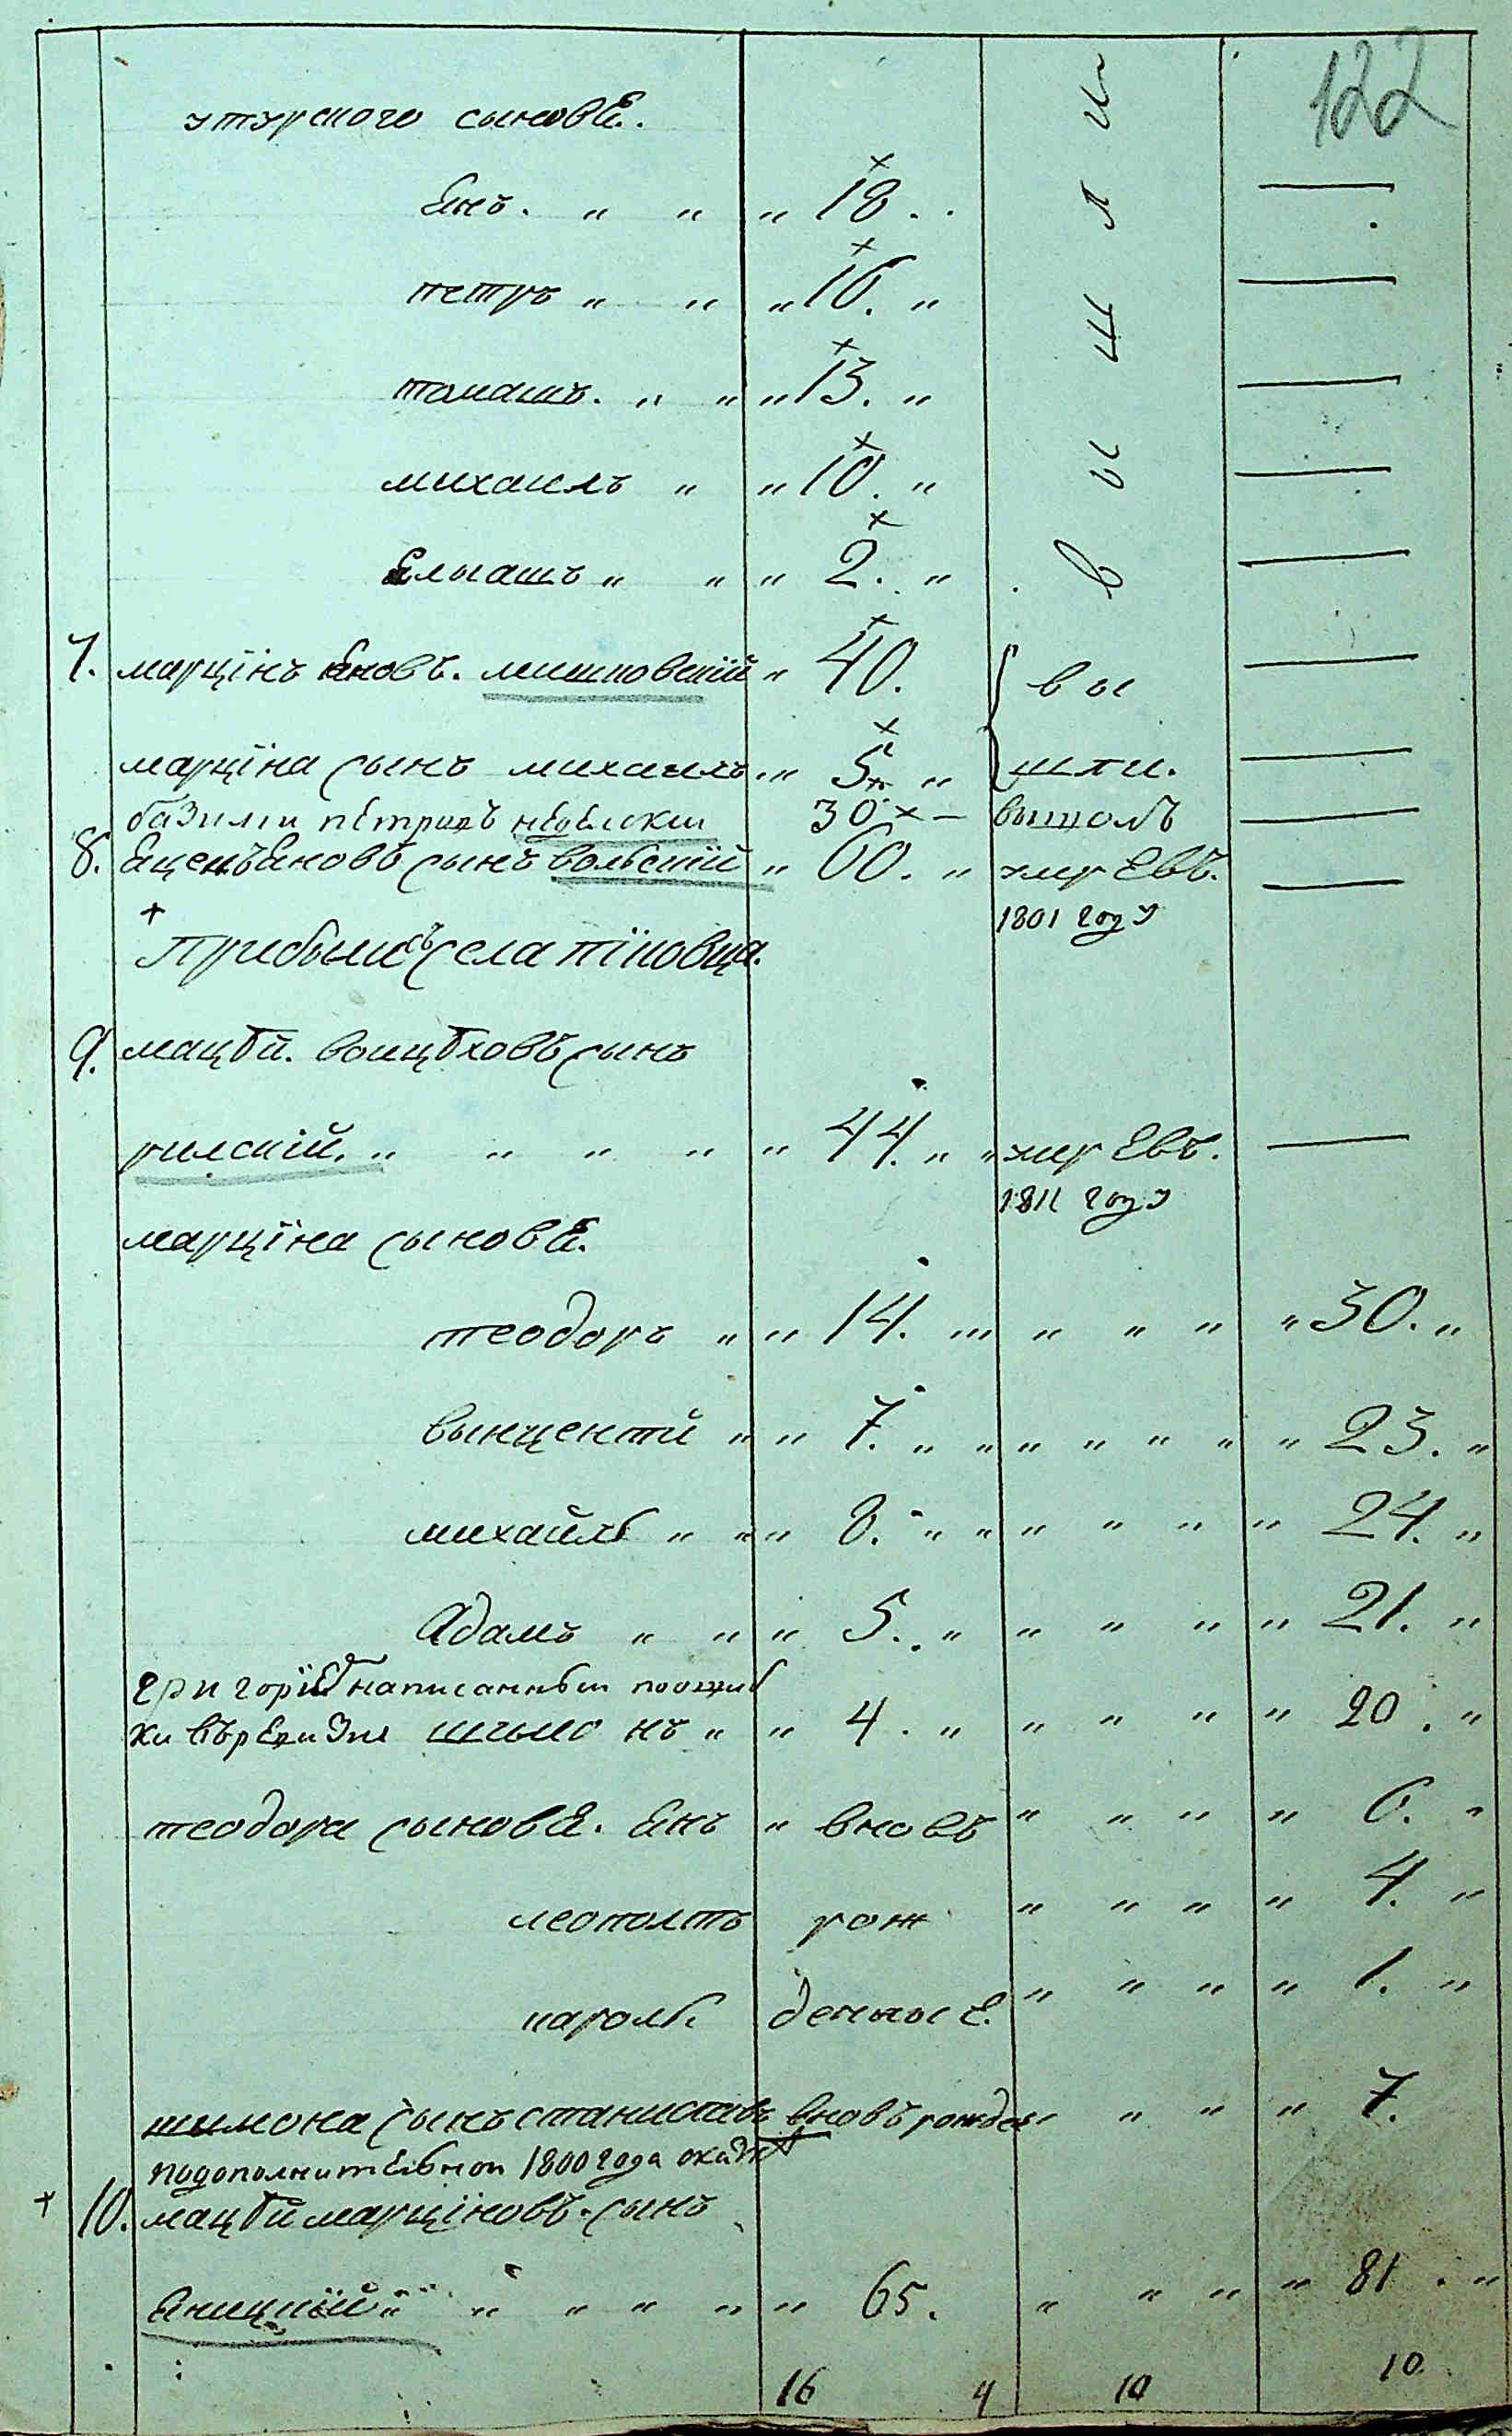 122
утурского сыновѣ.
Янъ. " " " 18. .
петръ " " " 16. "
томашъ. " " " 13. "
михаилъ " " 10. "
Елыашъ " " " 2. "
вышли
7. марцїнъ Яновъ. мишковскїй " 40. вы
марцїна сынъ михаилъ. " 5. " шли.
базили петривъ 30 —
8. Яцекъ Яновъ сынъ вольскїй " 60. " умрЕвъ.
1801 году
Прибыли съ села пїковца.
9. мацѣй. воицѣховъ сынъ
рилскїй. " " " " " 44. " " умрЕвъ.
1811 году
марцїна сыновЯ.
теодоръ " " 14. " " " " " 30. "
вынценти " " 7. " " " " " " " 23. "
михайлъ " " " 8. " " " " " " 24. "
Адамъ " " " 5. " " " " " 21. "
григорїЕ написанный
Хи въ рЕвизи шымонъ " " 4. " " " " " 20. "
теодора сыновЯ. Янъ " вновъ " " " " 6. "
леополтъ рож " " " " 4. "
кароль денныЕ. " " " " 1. "
шымона сынъ станиславъ вновъ рожден " " " 7.
подополнитЕльной 1800 года
10. мацѣй марцїновъ. сынъ
Яницкїй " " " " " " 65. " " " " 81. "
16 4 10 10